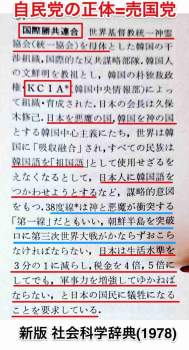 自民党の正体=売国党
国際勝共連合 世界基督教統一神霊
協会(統一協会)を母体とした韓国の干
渉組織,国際的な反共謀略部隊。韓国人
の文鮮明を教祖とし,韓国の朴独裁政
権・KCIA*(韓国中央情報部)によっ
て組織・育成された。日本の会長は久保
木修己。日本を悪魔の国,韓国を神の国
とする韓国中心主義にたち,世界は韓
国に「吸収融合」され,すべての民族は
韓国語を「祖国語」として使用せざるを
えなくなるとして,日本人に韓国語を
つかわせようとするなど,謀略的意図
をもつ。38度線*は神と悪魔が衝突する
「第一線」だともいい,朝鮮半島を突破
口に第三次世界大戦がかならずおこら
なければならない,日本は生活水準を
3分の1に減らし,税金を4倍,5倍に
してでも,軍事力を増強してゆかねば
ならない,と日本の国民に犠牲になる
ことを要求している。
新版 社会科学辞典(1978)